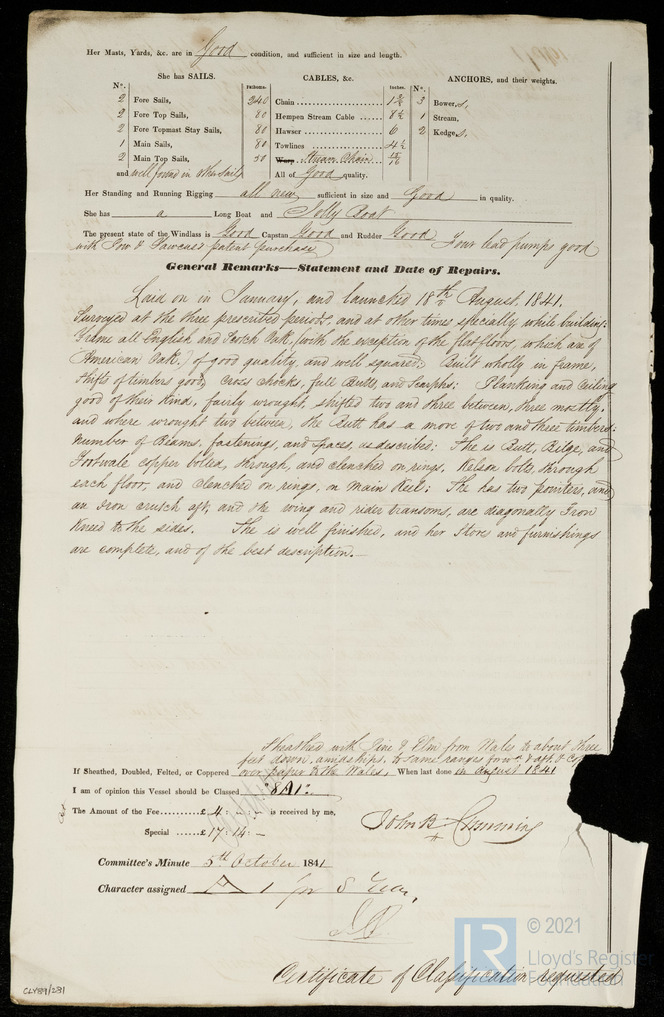 Her Masts, Yards, &c. are in Good condition, and sufficient in size and length.
She has SAILS. CABLES, &c. ANCHORS, and their weights.
No. Fathoms. Inches. No.
2 Fore Sails, 240 Chain 3 Bowers,
2 Fore Top Sails, 80 Hempen Stream Cable 8½ 1 Stream,
2 Fore Topmast Stay Sails, 80 Hawser 6 2 Kedges,
1 Main Sails, 80 Towlines 4½
2 Main Top Sails, 50 Warp Stream Chain
and well found in other sails All of Good quality.
Her Standing and Running Rigging all new sufficient in size and Good in quality.
She has a Long Boat and Jolly Boat
The present state of the Windlass is Good Capstan Good and Rudder Good Four lead pumps good
with patent purchase
General Remarks—Statement and Date of Repairs.
Laid on in January, and launched 18th August 1841,
Surveyed at the three prescribed periods, and at other times specially while building:
Frame all English and Scotch Oak, (with the exception of the flat floors, which are of
American Oak.) of good quality, and well squared: Built wholly in frame,
Shifts of timbers good, cross chocks, full Butts, and Scarphs: Planking and Ceiling
good of their kind, fairly wrought, shifted two and three between, three mostly,
and where wrought two between, the Butt has a move of two and three timbers:
number of Beams, fastenings, and spaces, as described: She is Butt, Bilge, and
Footwale copper bolted, through, and clenched on rings, Kelson bolts, through
each floor, and clenched on rings, on Main Keel: She has two pointers, and
an Iron crutch aft, and the wing and rider transoms, are diagonally Iron
Kneed to the sides. She is well finished, and her Stores and furnishings
are complete, and of the best description.—
Sheathed with Pine & Elm from Wales to about three
feet down amidships, to same ranges forwd & aft, &
If Sheathed, Doubled, Felted, or Coppered over paper to the Wales, When last done in August 1841
I am of opinion this Vessel should be Classed 8A1:
The Amount of the Fee £ 4 : - : - is received by me,
John B Cumming
Special £ 17 : 14 : -
Committee's Minute 5th October 1841
Character assigned A 1 for 8 Years,
Certificate of Classification requested
CLY89/231
LR
© 2021
Lloyd's Register
Foundation